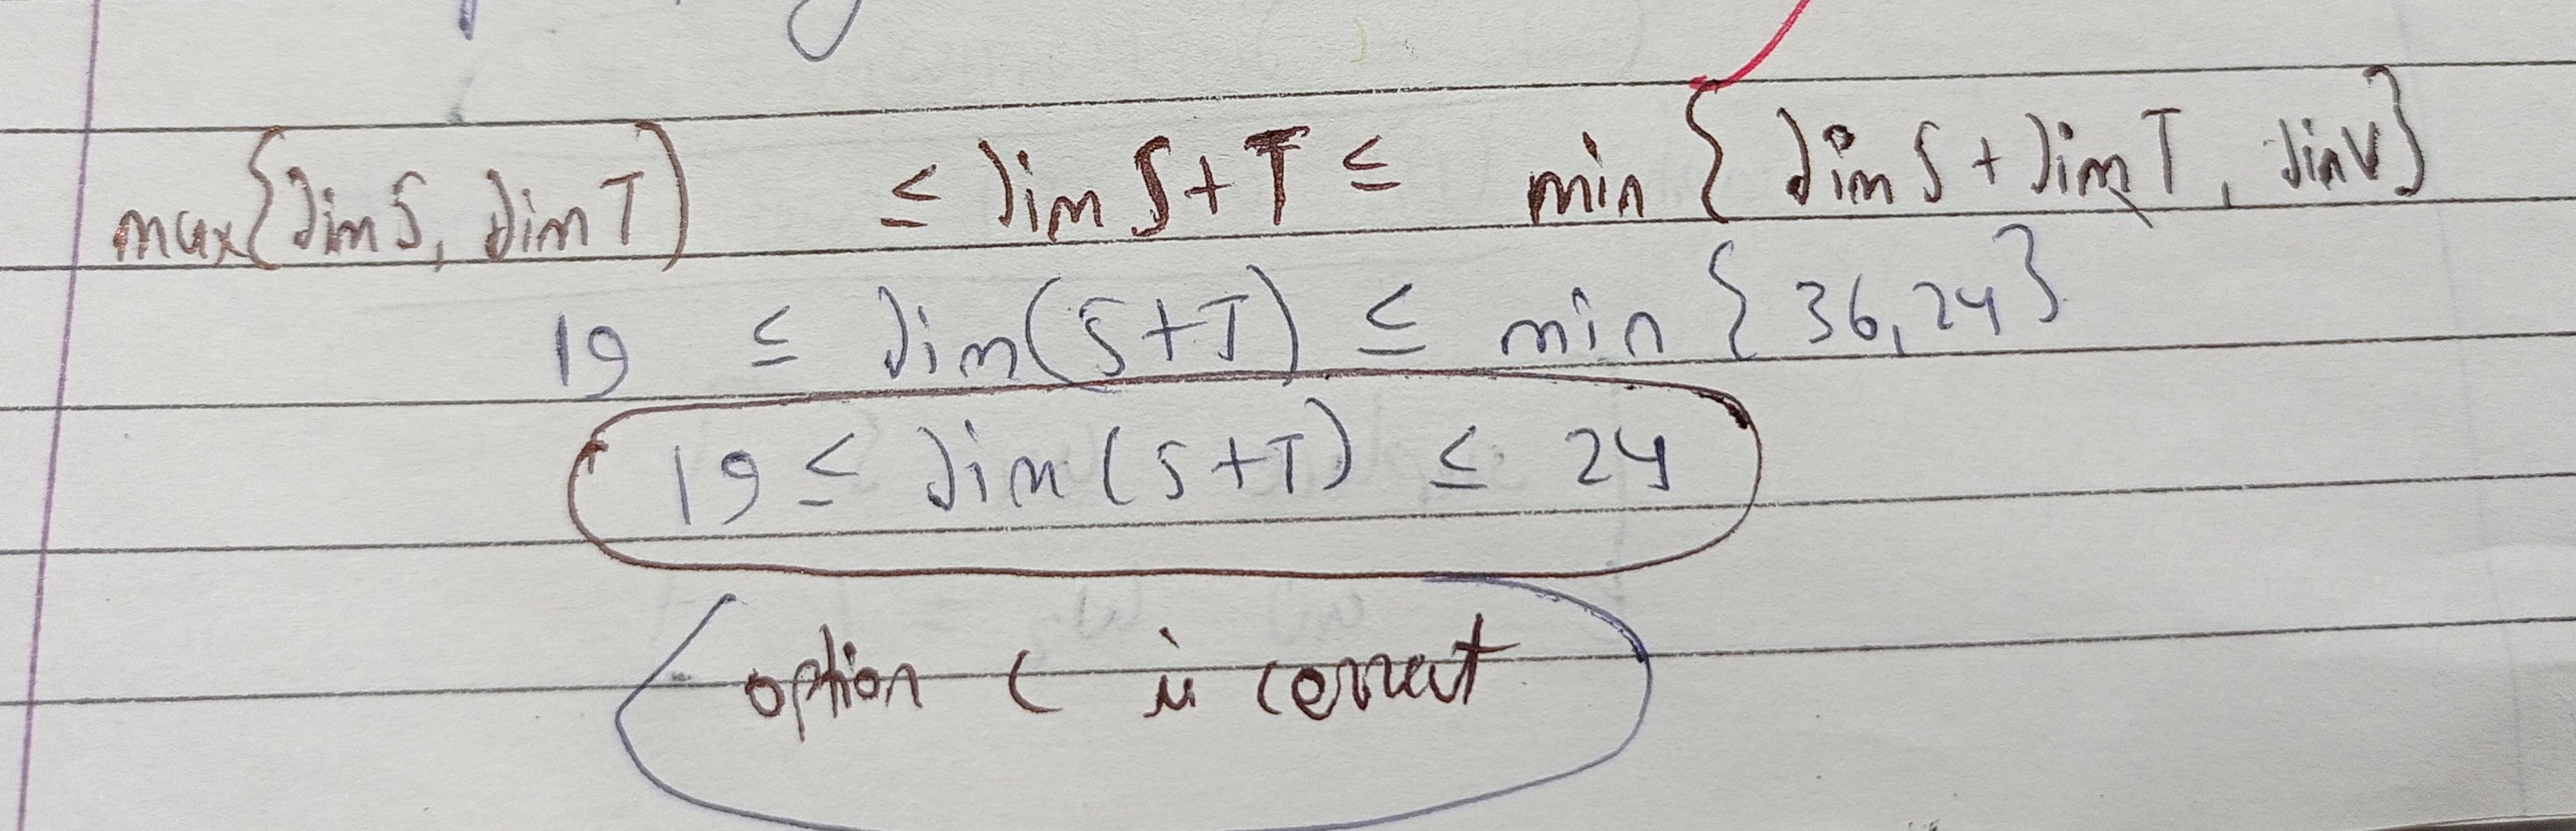 max{dim S, dim T} ≤ dim S+T ≤ min { dim S + dim T, dim V}
19 ≤ dim(S+T) ≤ min { 36, 24}
19 ≤ dim (S+T) ≤ 24
option C is correct